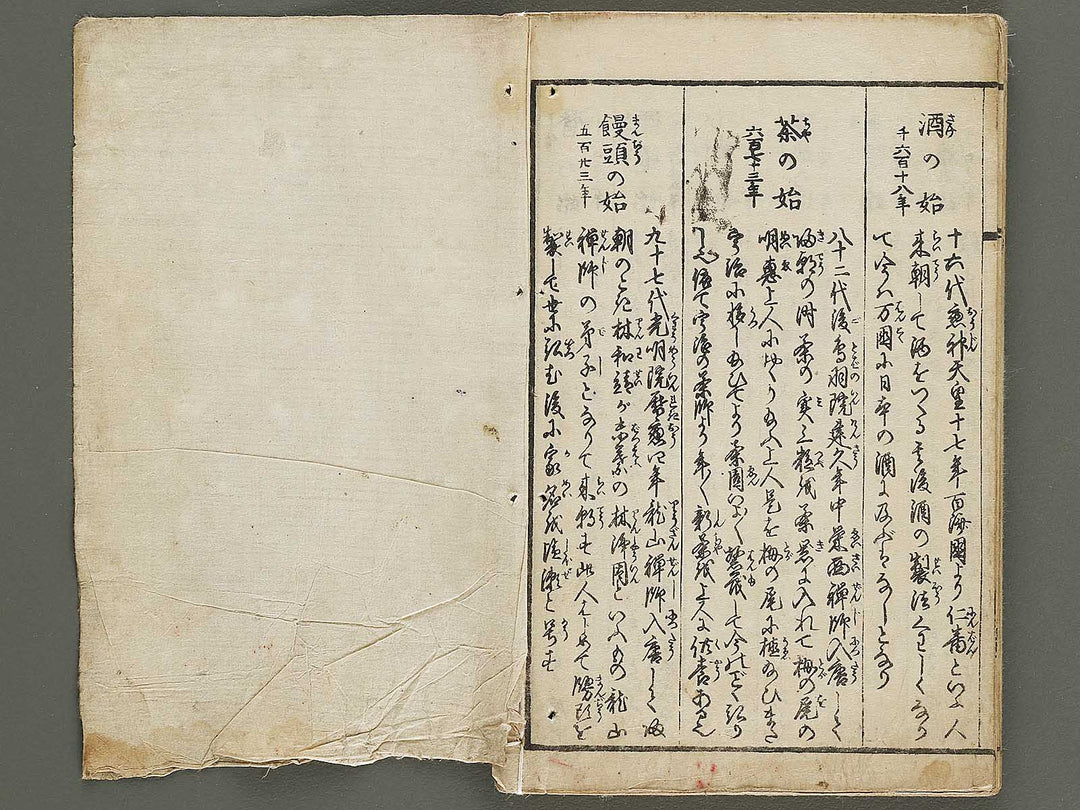 酒の始
千六百十八年
十六代應神天皇十七年百済國より仁番といふ人
来朝して酒をつくる其後酒の製法くわしくなり
て今ハ万國に日本の酒に及ぶはなしとなり
茶の始
六百七十三年
八十二代後鳥羽院建久年中栄西禅師入唐して
帰朝の時茶の実三粒を茶器に入れて栂の尾の
明恵上人におくり給ふ上人是を栂の尾に植給ひまた
宇治に植しめ給ひてより茶園いよ〱繁茂して今のごとくなり
宇治の茶師より年〱新茶を上人に供
饅頭の始
五百廿三年
九十七代光明院暦應四年龍山禅師入唐して帰
朝のとき林和靖が末葉の林浄因といふもの龍山
禅師の弟子となりて来朝す此人はじめて饅頭を
製して世に弘む後に家名を塩瀬と号す